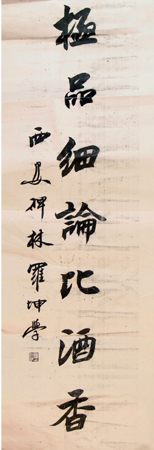 極品細論比酒香
西安碑林羅坤學